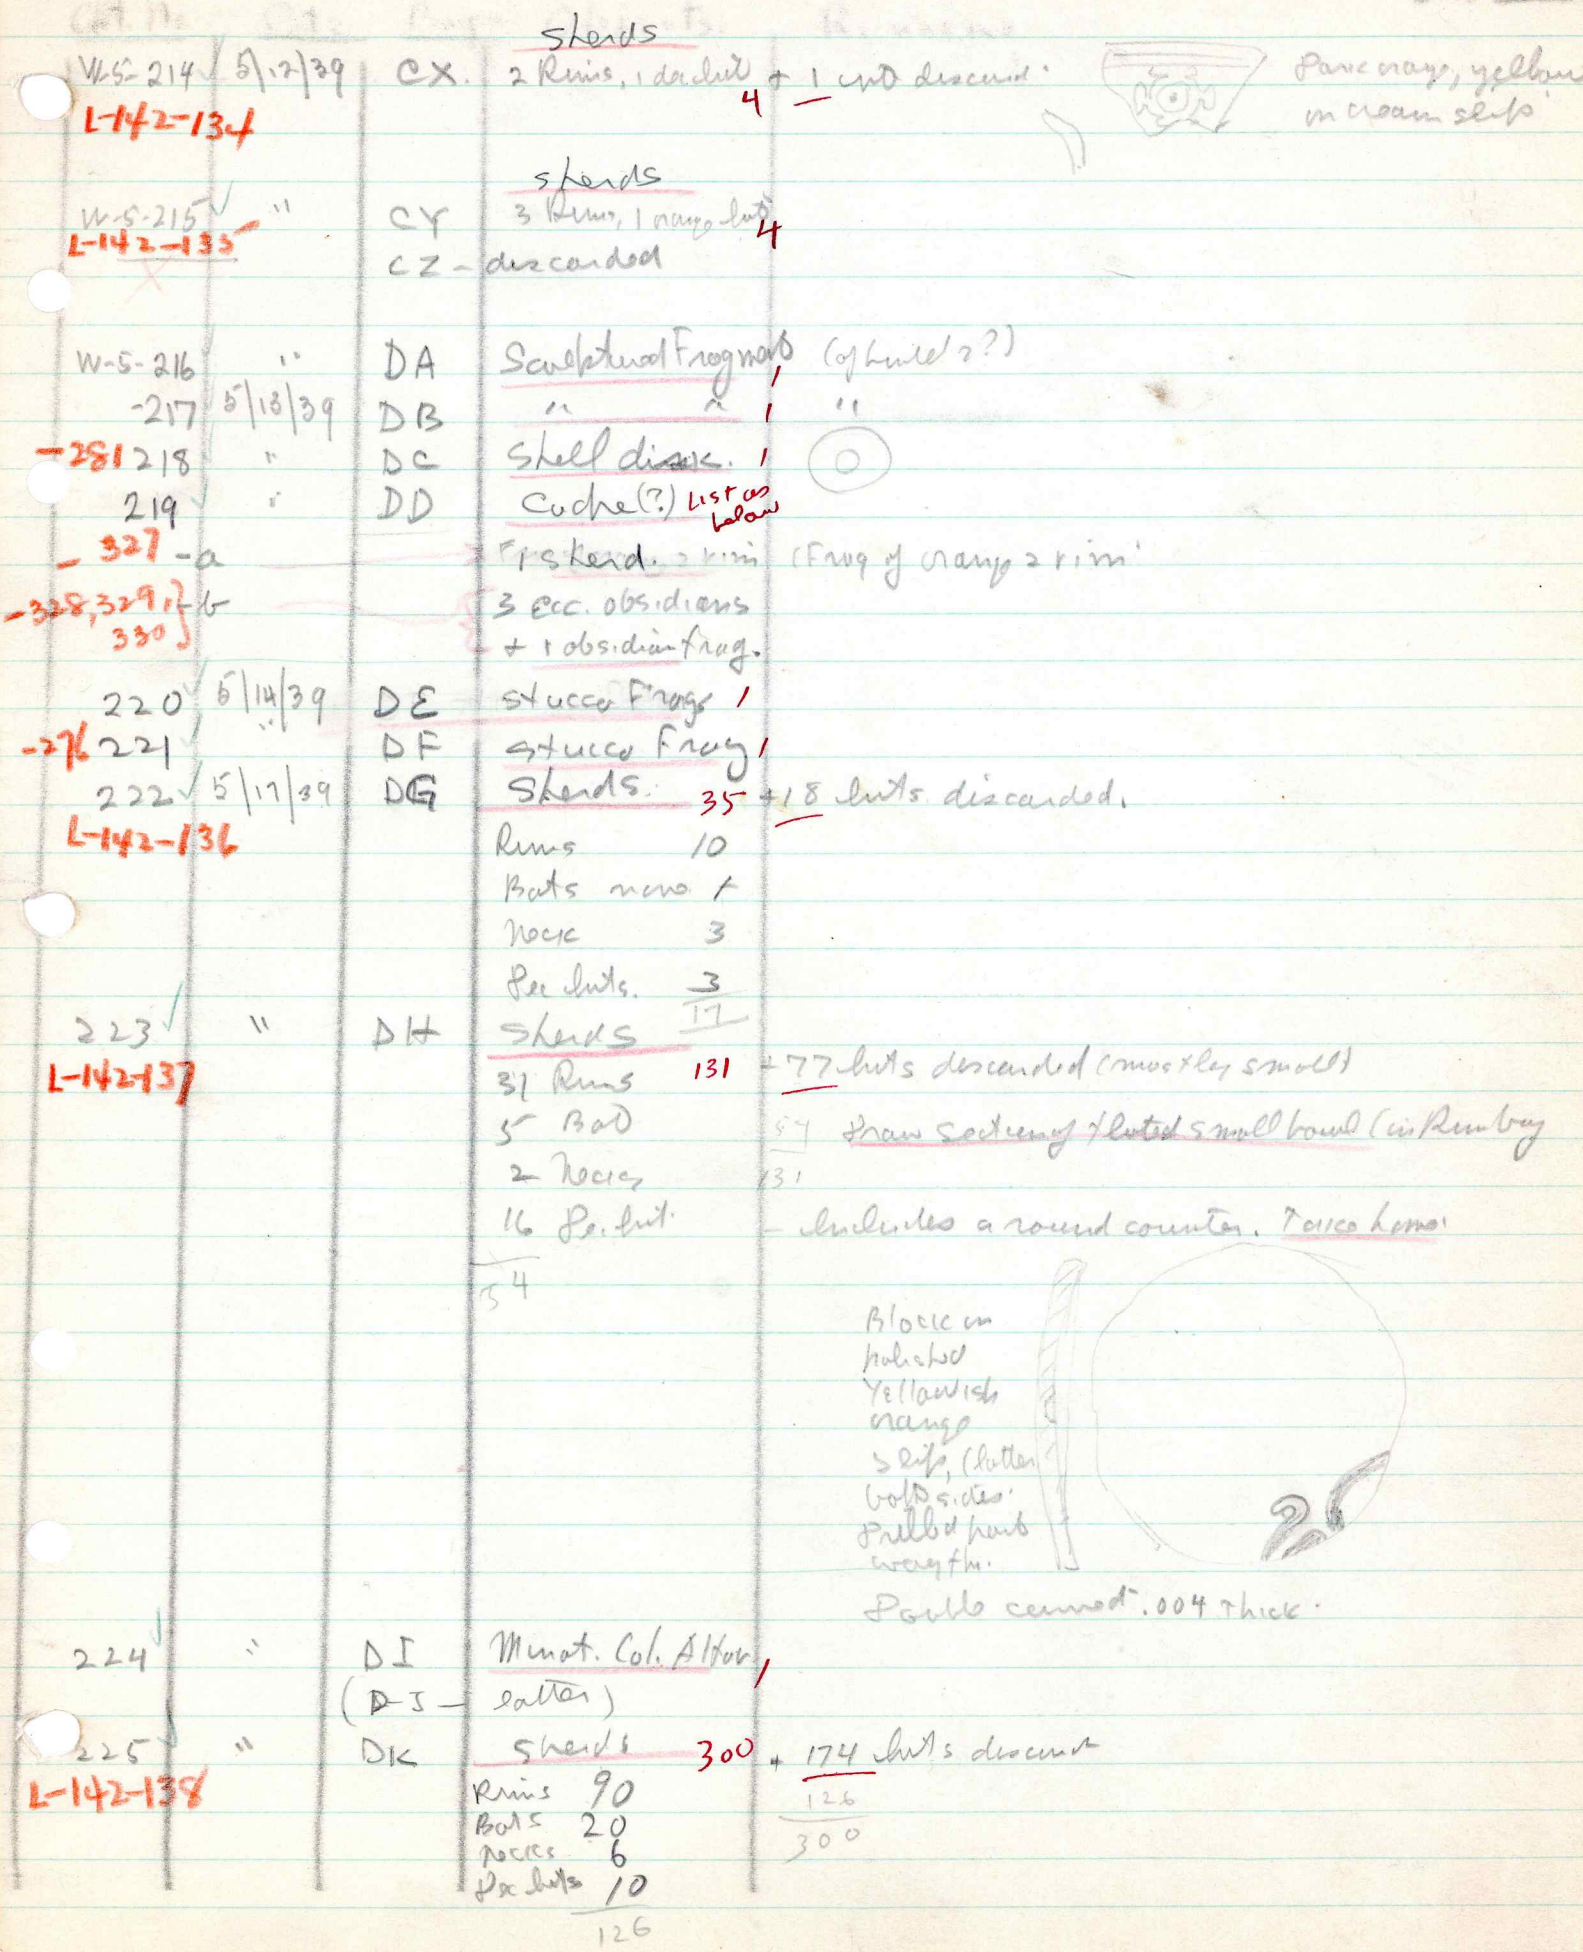 Sherds
W-5-214 5/12/39 CX. 2 Rims, 1 dec. bit 4 + 1 unit discard.
L-142-134
Dark orange, yellow
on cream slip
Sherds
W-5-215 " CY 3 Rims, 1 orange bit 4
L-142-135
CZ - discarded
W-5-216 " DA Sculptured Fragment 1
-217 5/13/39 DB " " 1 "
-281 218 " DC Shell disk. 1
219 " DD Cache(?) List as
below
-327 -a 1 sherd. 2 rim (Frag of orange 2 rim
-328, 329, } -b 3 ecc. obsidians
330 + 1 obsidian frag.
220 5/14/39 DE Stucco Frags 1
-276 221 " DF Stucco Frag 1
222 5/17/39 DG Sherds. 35 +18 bits discarded.
L-142-136
Rims 10
Bots none
Neck 3
Dec bits. 3
17
223 " DH Sherds
L-142-137
31 Rims 131 +77 bits discarded (mostly small)
5 Bot 54 Draw section of fluted small bowl (in Rim bag
2 Necks 131
16 Dec. bit. - Includes a round counter.
54
Black on
polished
Yellowish
orange
slip, (latter
both sides.
Drilled part
way thr.
Double convex .004 thick.
224 " DI Miniat. Col. Altar 1
(DJ - latter)
225 " DK Sherds 300 + 174 bits discard
L-142-138
Rims 90 126
Bots 20 300
Necks 6
Dec bits 10
126